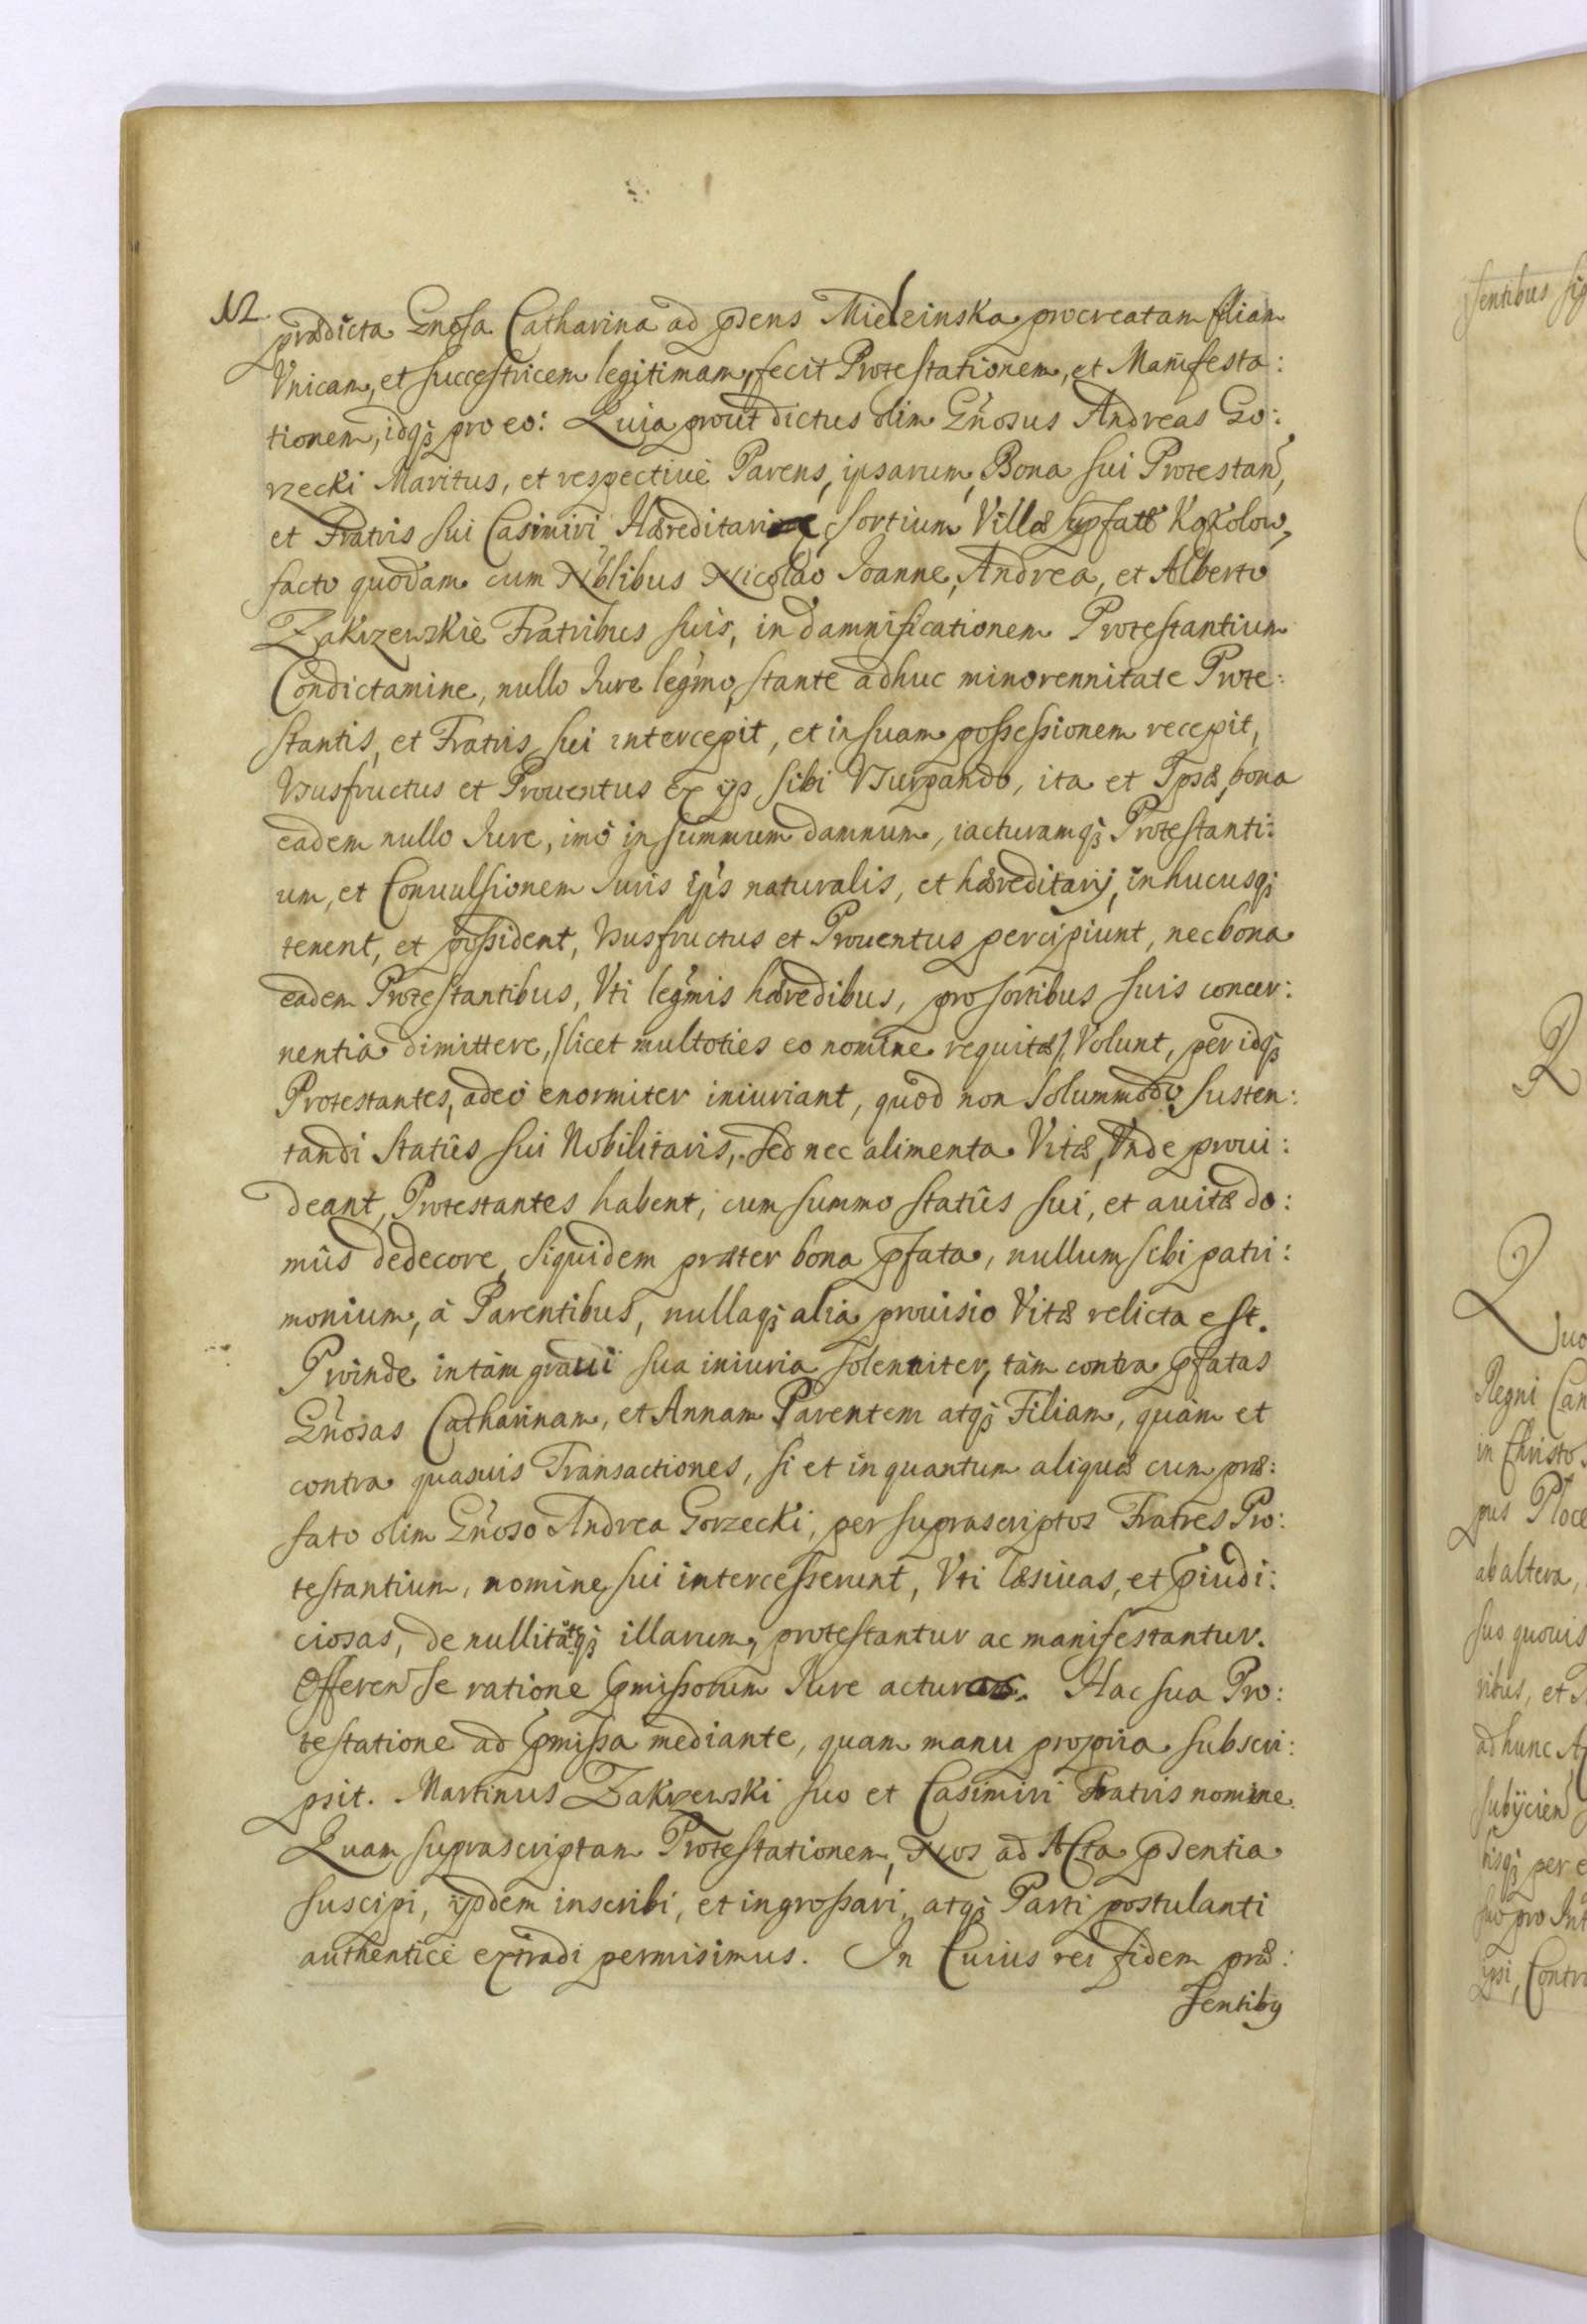 prædicta Gnosa Catharina ad pñens Mieleinska procreatam filiam
Vnicam, et successtricem legitimam, fecit Protestationem, et Manifesta:
tionem, idq; pro eo: Quia prout dictus olim Gñosus Andreas Go:
rzecki Maritus, et respectivè Parens, ipsarum, Bona sui Protestan,
et Fratris sui Casimiri Hæreditaria, sortium Villæ supfatæ Kokolow,
facto quodam cum Nblibus Nicolao Joanne, Andrea, et Alberto
Zakrzewskie Fratribus suis, in damnificationem Protestantium
Condictamine, nullo Jure legmo, stante adhuc minorennitate Prote:
stantis, et Fratris sui intercepit, et in suam possessionem recepit,
Vsusfructus et Prouentus ex ijs sibi Vsurpando, ita et Ipsæ, bona
eadem nullo Jure, imò in summum damnum, iacturamq; Protestanti:
um, et Conuulsionem Juris ips naturalis, et hæreditarij, inhucusq;
tenent, et possident, Vsusfructus et Prouentus percipiunt, nec bona
eadem Protestantibus, Vti legmis hæredibus, pro sortibus suis concer:
nentia dimittere, /licet multoties eo nomine requitæ/ Volunt, per idq;
Protestantes, adeò enormiter iniuriant, quod non solummodo susten:
tandi statûs sui Nobilitaris, sed nec alimenta Vitæ, Vnde proui:
deant, Protestantes habent, cum summo statûs sui, et auitæ do:
mûs dedecore, siquidem præter bona pfata, nullum sibi patri:
monium, à Parentibus, nullaq; alia prouisio Vitæ relicta est.
Proinde in tàm graui sua iniuria solenniter, tàm contra pfatas
Gñosas Catharinam, et Annam Parentem atq; Filiam, quàm et
contra quasuis Transactiones, si et in quantum aliquæ cum præ:
fato olim Gñoso Andrea Gorzecki, per suprascriptos Fratres Pro:
testantium, nomine sui intercesserunt, Vti læsiuas, et piudi:
ciosas, de nullitateq; illarum, protestantur ac manifestantur.
Offeren se ratione pmissorum Jure acturos. Hac sua Pro:
testatione ad pmissa mediante, quam manu propria subscri:
psit. Martinus Zakrzewski suo et Casimiri Fratris nomine.
Quam suprascriptam Protestationem, Nos ad Acta pñsentia
suscipi, ijsdem inscribi, et ingrossari, atq; Parti postulanti
authenticè extradi permisimus. In Cuius rei fidem præ:
sentibq
sentibus sig
Q
Quo
Regni Can
in Christo
pus Ploce
ab altera,
suo quouis
ribus, et
ad hunc A
subijcien
bisq; per e
suo pro Int
ipsi, Contr